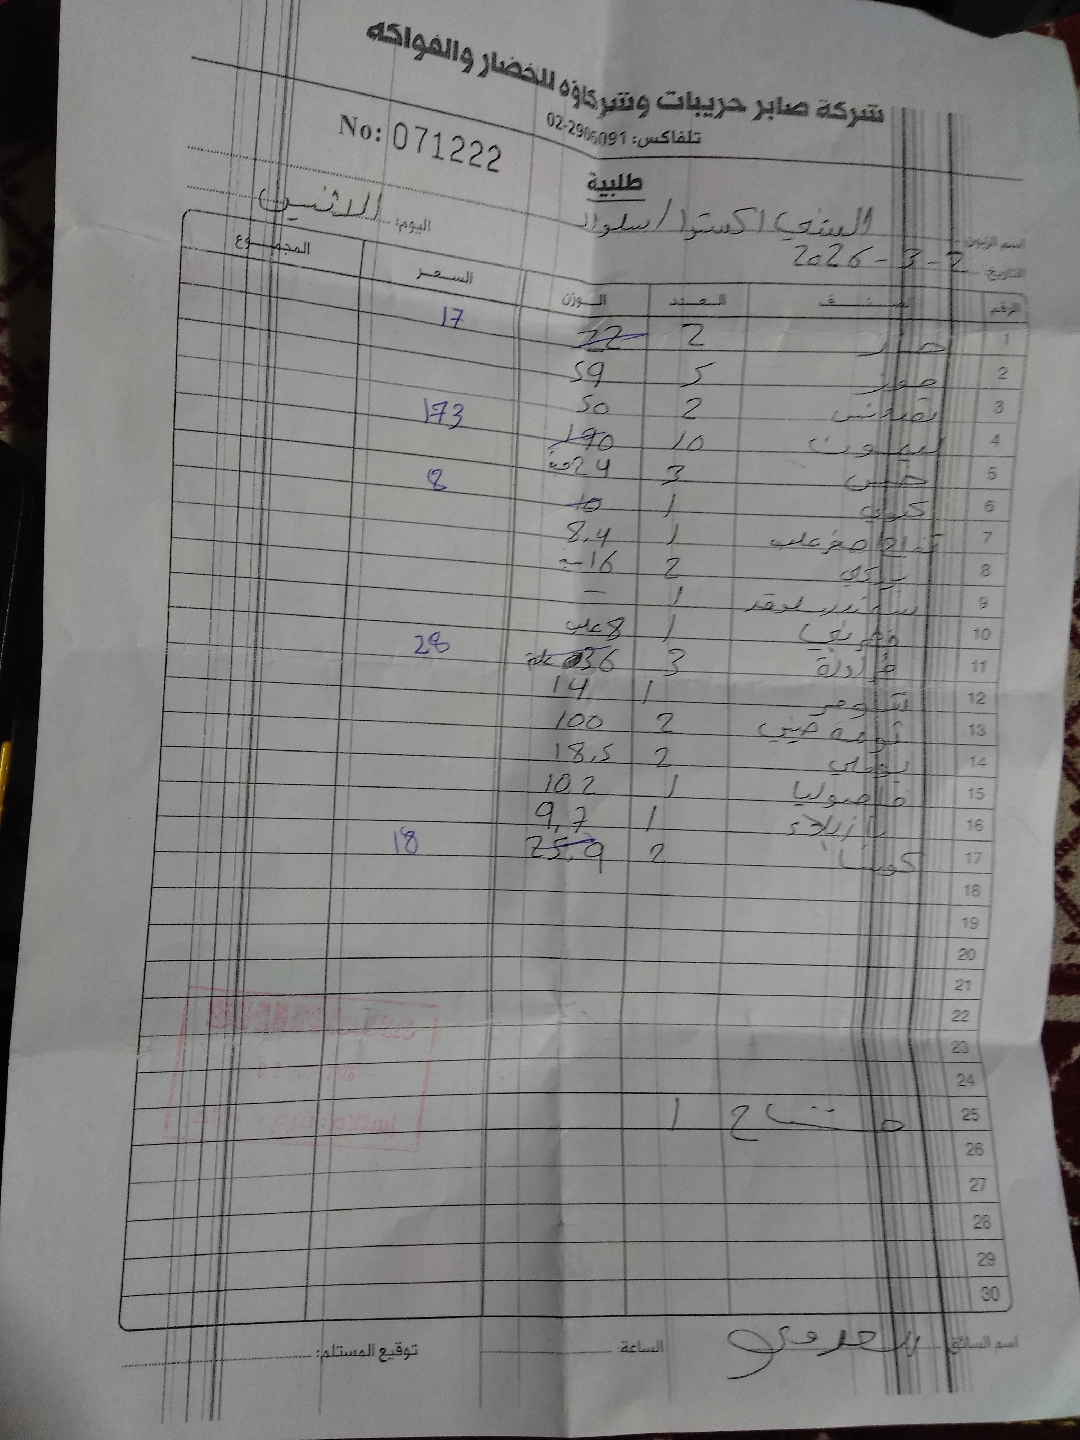 شركة صابر حريبات وشركاؤه للخضار والفواكه
تلفاكس: 02-2906091
No: 071222
طلبية
اسم الزبون: السني اكسترا / سلواد
اليوم: الاثنين
التاريخ: 2-3-2026
الرقم الصنف العدد الوزن السعر المجموع
1 خيار 2 22 17
2 موز 5 59
3 بقدونس 2 50
4 ليمون 10 190 173
5 خس 3 24
6 كيوي 1 10 8
7 تفاح اصفر علب 1 8,4
8 2 16
9 1 -
10 1 8 علب
11 فراولة 3 36 علبة 28
12 شومر 1 14
13 ثومة صيني 2 100
14 بوملي 2 18,5
15 فاصوليا 1 10,2
16 بازيلاء 1 9,7
17 كوسا 2 25,9 18
18
19
20
21
22
23
24
25 1
26
27
28
29
30
اسم السائق الساعة: توقيع المستلم: